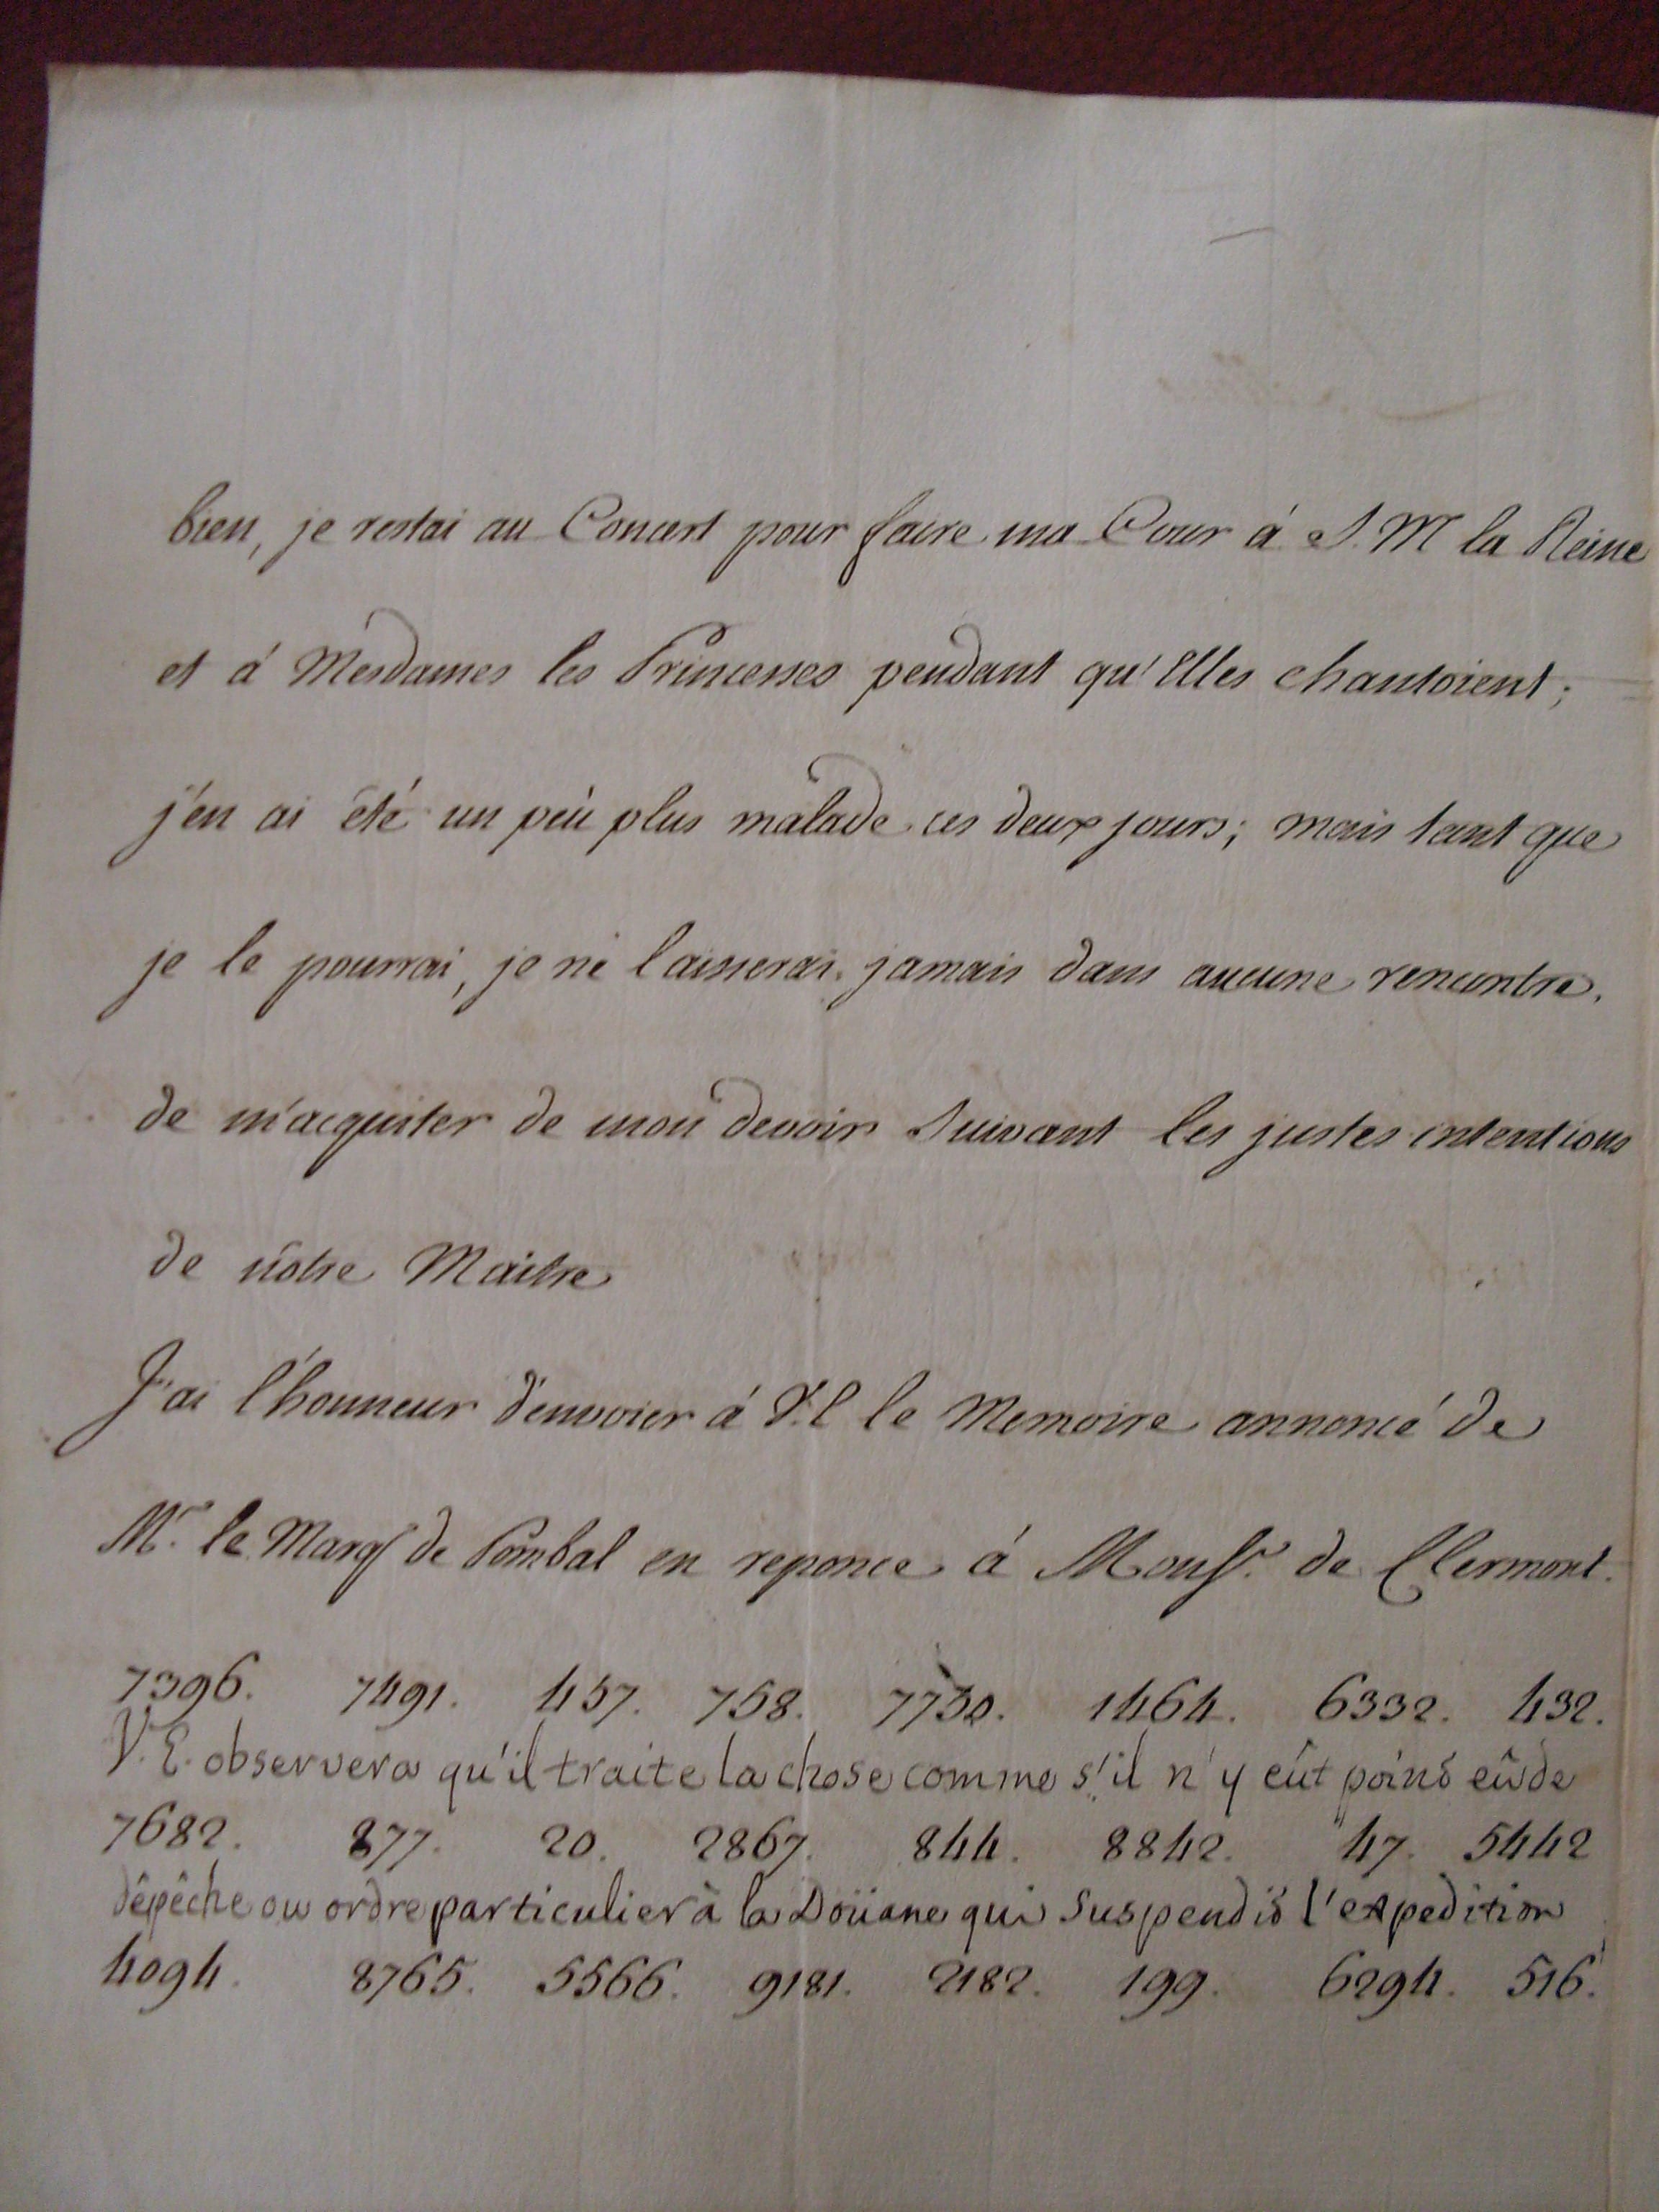 bien, je restai au Concert pour faire ma Cour á S. M la Reine
et á Mesdames les Princesses pendant qu'Elles chantoient;
j'en ai été un peù plus malade ces deux jours; mais tant que
je le pourrai, je ne laisserai jamais dans aucune rencontre.
de m'acquiter de mon devoir Suivant les justes intentions
de nôtre Maitre
J'ai l'honneur d'envoier á V.E le Memoire annoncé de
Mr. le Marqs de Pombal en reponce á Monsr. de Clermont.
7396. 7491. 457. 758. 7730. 1464. 6332. 432.
V. E. observera qu'il traite la chose comme s'il n'y eût point eû de
7682. 877. 20. 2867. 844. 8842. 47. 5442
dêpêche ou ordre particulier à la Doüane qui Suspendit l'expedition
4094. 8765. 5566. 9181. 2182. 199. 6294. 516.